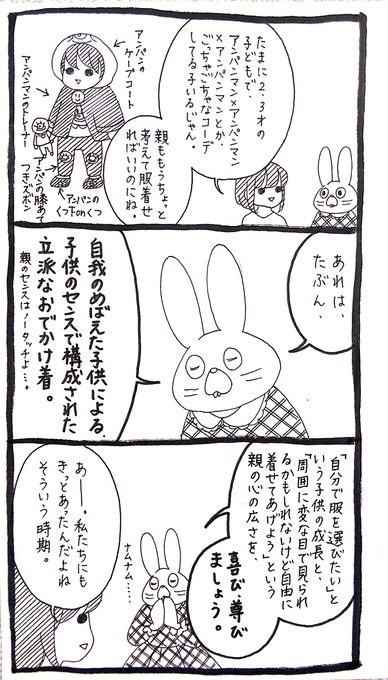 たまに2、3才の
子どもで、
アンパンマン×アンパンマン
×アンパンマンとか、
ごっちゃごちゃなコーデ
してる子いるじゃん。
親ももうちょっと
考えて服着せ
ればいいのにね。
アンパンの
ケープコート
アンパンマンのトレーナー
アンパンの膝あて
つきズボン
アンパンの
くつ下onくつ
あれは、
たぶん、
自我のめばえた子供による、
子供のセンスで構成された
立派なおでかけ着。
親のセンスはノータッチよ…。
「自分で服を選びたい」と
いう子供の成長と、
「周囲に変な目で見られ
るかもしれないけど自由に
着せてあげよう」という
親の心の広さを、
喜び・尊び
ましょう。
ナムナム……
あー。私たちにも
きっとあったんだよね
そういう時期。